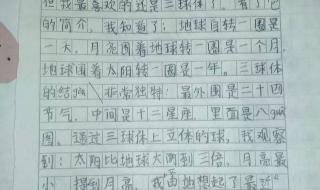 但我最喜欢的还是三球体了。看了它
的简介，我知道了：地球自转一圈是
一天，月亮围着地球转一圈是一个月，
地球围着太阳转一圈是一年。三球体
的结构非常独特：最外围是二十四
节气，中间是十二星座，里面是八
图。透过三球体上立体的球，我观察
到：太阳比地球大两到三倍，月亮最
小。提到月亮，我由地想起了最近